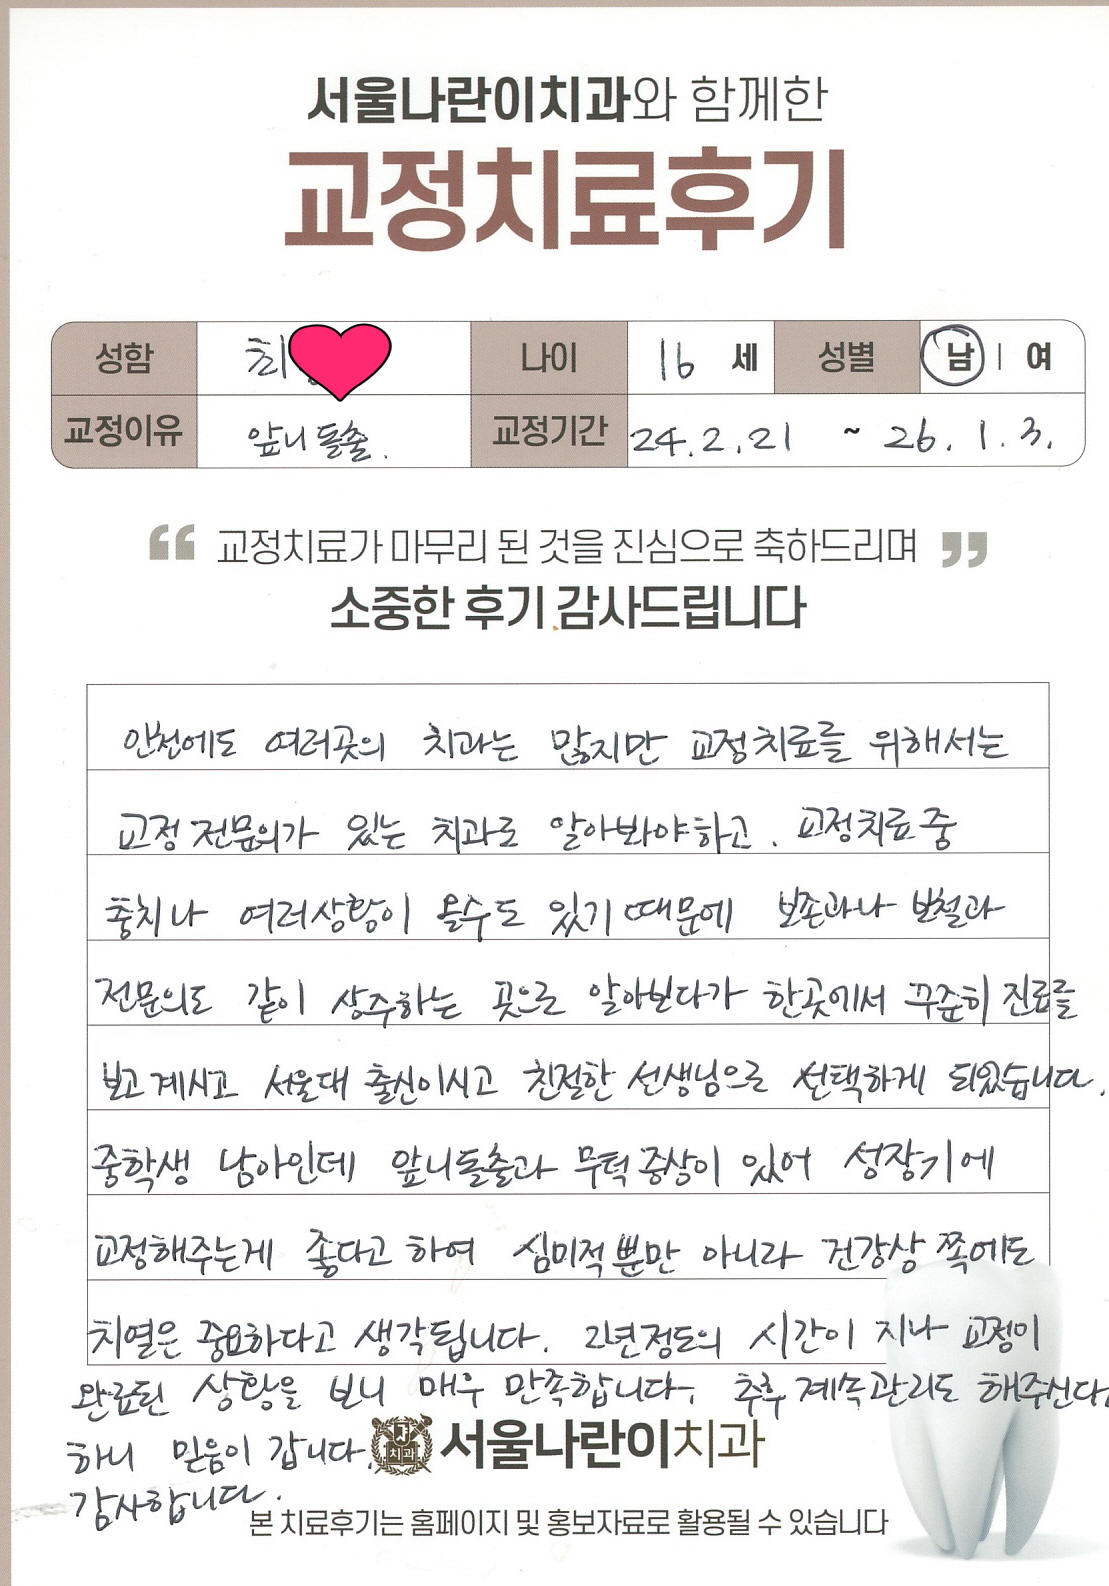 서울나란이치과와 함께한
교정치료후기
성함 최 나이 16 세 성별 남 | 여
교정이유 앞니 돌출. 교정기간 24.2.21 ~ 26.1.3.
“ 교정치료가 마무리 된 것을 진심으로 축하드리며 ”
소중한 후기 감사드립니다
인천에도 여러곳의 치과는 많지만 교정치료를 위해서는
교정 전문의가 있는 치과로 알아봐야하고. 교정치료 중
충치나 여러상황이 올수도 있기 때문에 보존과나 보철과
전문의도 같이 상주하는 곳으로 알아보다가 한곳에서 꾸준히 진료를
보고 계시고 서울대 출신이시고 친절한 선생님으로 선택하게 되었습니다.
중학생 남아인데 앞니돌출과 무턱 증상이 있어 성장기에
교정해주는게 좋다고 하여 심미적 뿐만 아니라 건강상 쪽에도
치열은 중요하다고 생각됩니다. 2년정도의 시간이 지나 교정이
완료된 상황을 보니 매우 만족합니다. 추후 계속관리도 해주신다고
하니 믿음이 갑니다.
감사합니다.
치과
서울나란이치과
본 치료후기는 홈페이지 및 홍보자료로 활용될 수 있습니다